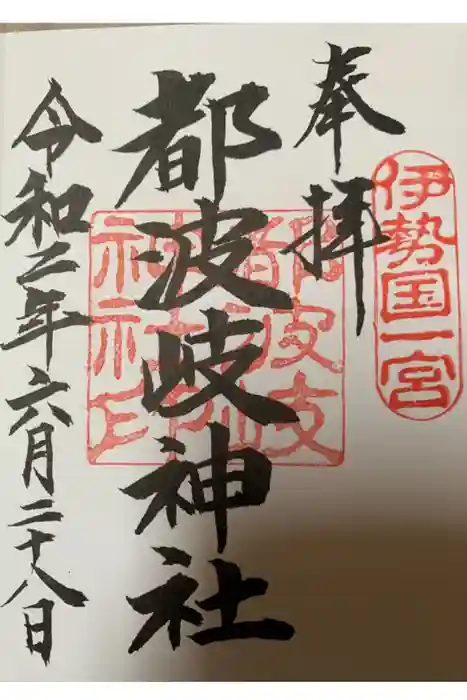 伊勢国一宮
奉拝
都波岐神社
都波岐
神社印
令和二年六月二十八日